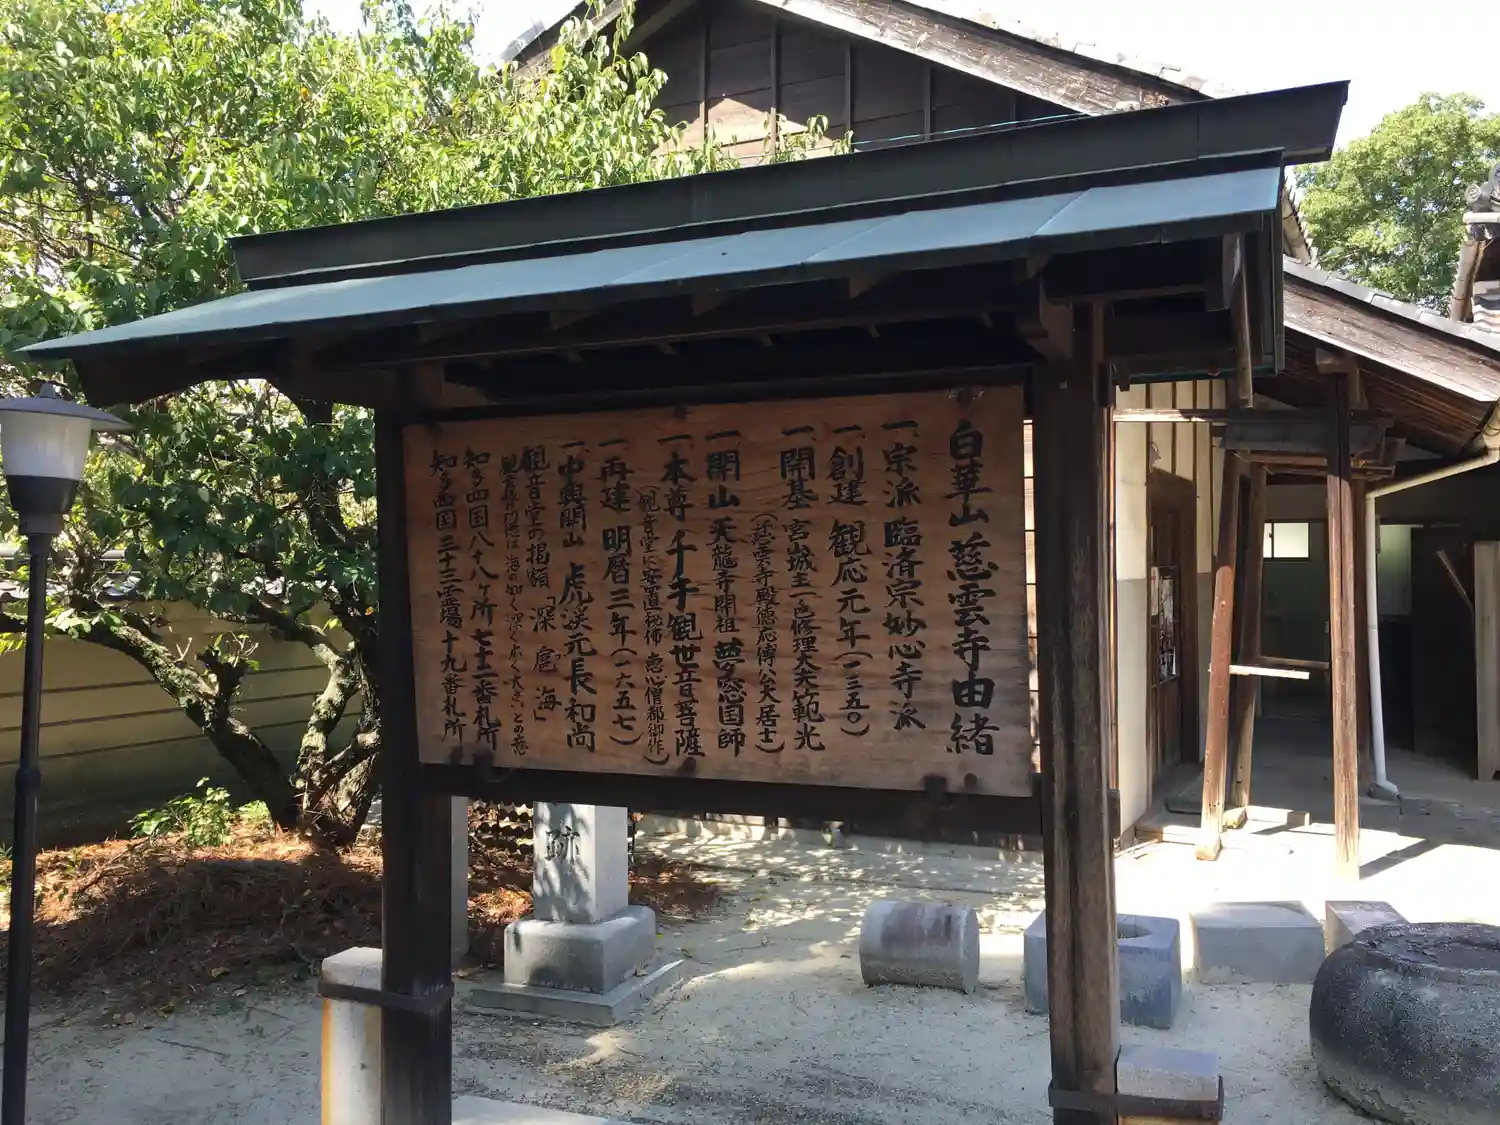 白華山慈雲寺由緒
一、宗派 臨済宗妙心寺派
一、創建 観応元年(一三五〇)
一、開基 宮城主一色修理大夫範光
(慈雲寺殿徳応傳公大居士)
一、開山 天龍寺開祖 夢窓国師
一、本尊 千手観世音菩薩
(観音堂に安置秘佛 恵心僧都御作)
一、再建 明暦三年(一六五七)
一、中興開山 虎渓元長和尚
観音堂の掲額「深 麁 海」
知多四国八十八ヶ所 七十二番札所
知多西国三十三霊場 十九番札所
跡